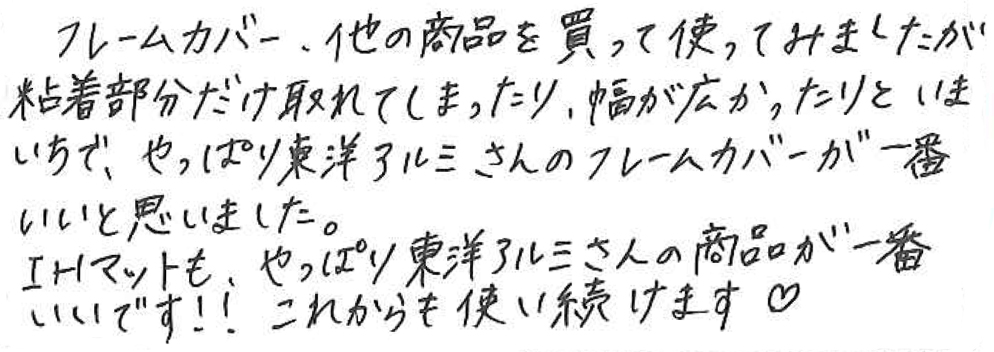 フレームカバー、他の商品を買って使ってみましたが
粘着部分だけ取れてしまったり、幅が広かったりといま
いちで、やっぱり東洋アルミさんのフレームカバーが一番
いいと思いました。
IHマットも、やっぱり東洋アルミさんの商品が一番
いいです!! これからも使い続けます♡